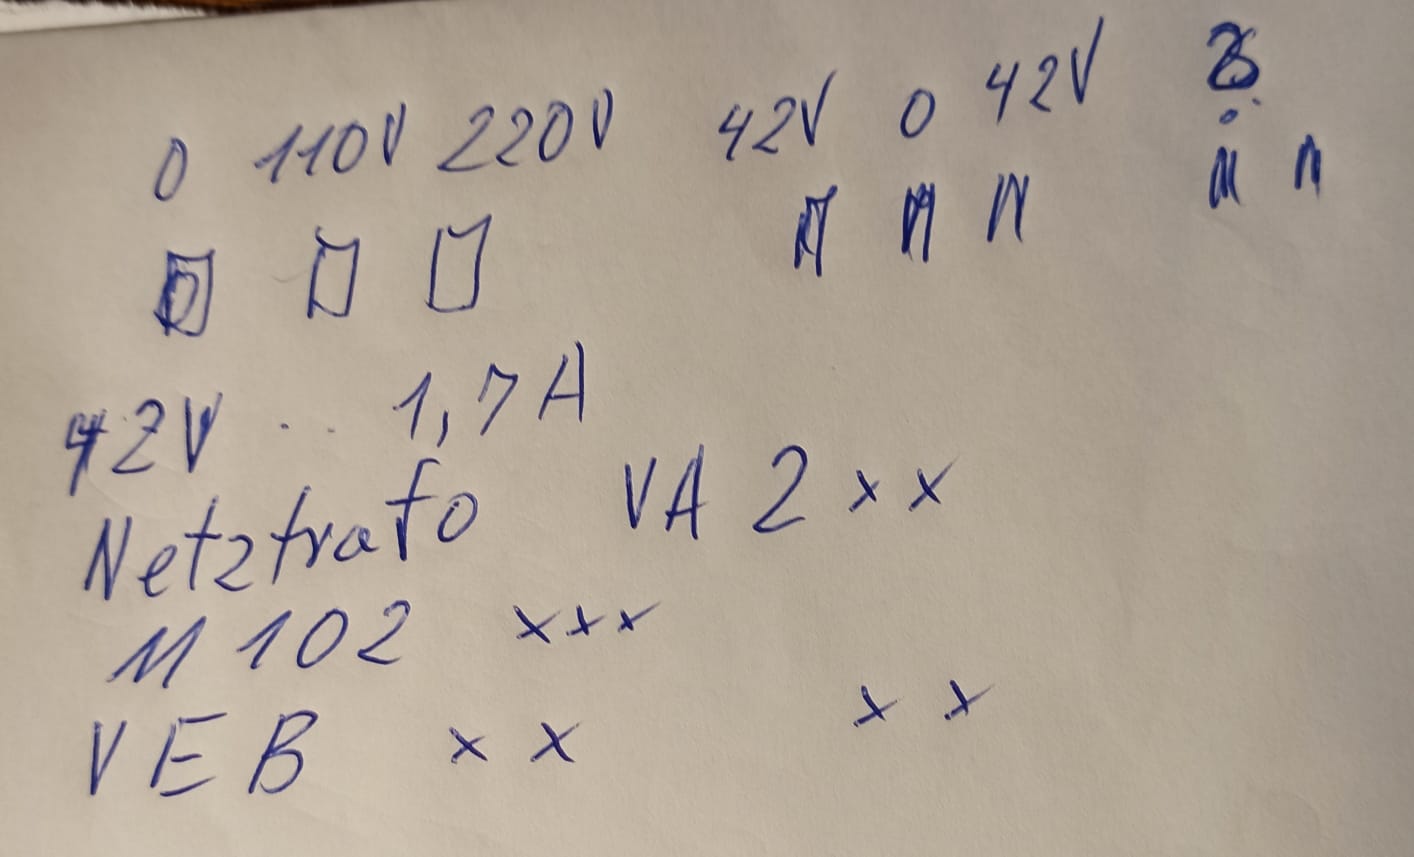 0 110V 220V 42V 0 42V
42V .. 1,7A
Netztrafo VA 2xx
M 102 xxx
VEB x x x x